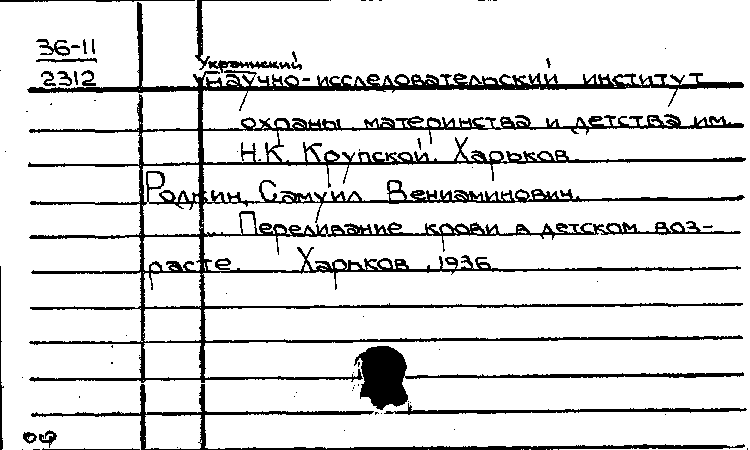 36-11
2312
Украинский
научно-исследовательский институт
охраны материнства и детства им.
Н.К. Крупской. Харьков.
Самуил Вениаминович.
Переливание крови в детском воз-
расте. Харьков, 1936